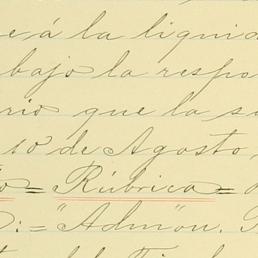 e á la liquid
bajo la respo
rio que la su
10 de Agosto,
o = Rúbrica =
: = "Admón.